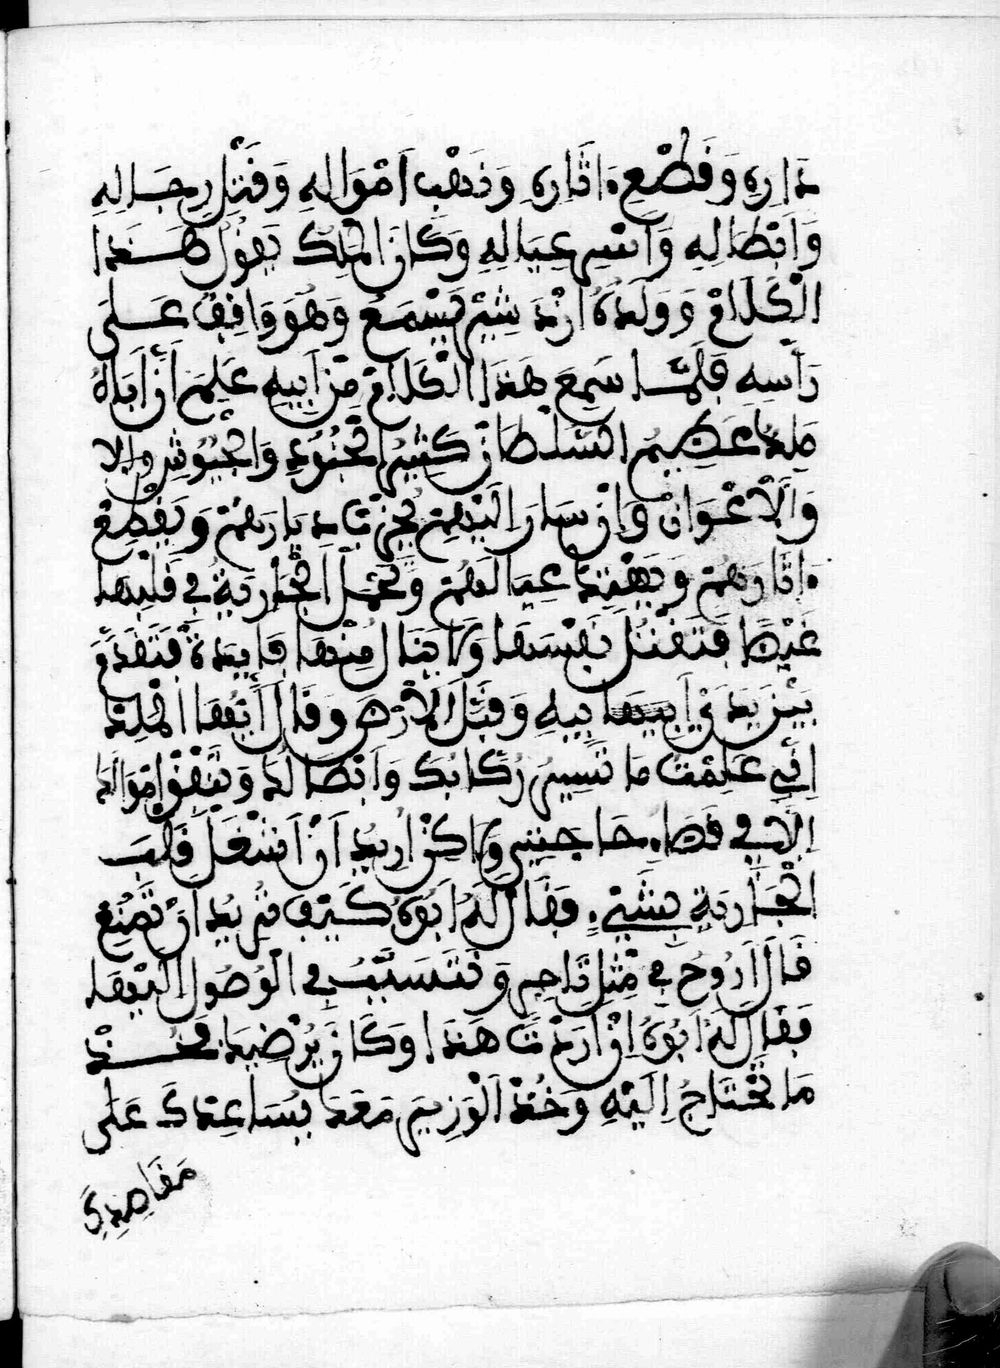 دَارِهِ وَقَطْعِ ءَاثَارِهِ وَنَهْبِ اَمْوَالِهِ وَقَتْلِ رِجَالِهِ
وَابْطَالِهِ وَاسْرِ عِيَالِهِ وَكَانَ الْمَلِكُ يَقُولُ هَذَا
الْكَلَامَ وَوَلَدُهُ ازْدَشِيرْ يَسْمَعُ وَهُوَ وَاقِفٌ عَلَى
رَأْسِهِ فَلَمَّا سَمِعَ هَذَا الْكَلَامَ مِنْ اَبِيهِ عَلِمَ اَنَّ اَبَاهُ
مَلِكٌ عَظِيمُ السُّلْطَانِ كَثِيرُ الْجُنُودِ وَالْجُيُوشِ
وَالْاَعْوَانِ وَاِنْ سَارَ اِلَيْهِمْ يُخَرِّبُ دِيَارَهُمْ وَيَقْطَعُ
ءَاثَارَهُمْ عِيَالَهُمْ وَتَحْمِلُ الْجَارِيَةُ فِي قَلْبِهَا
غَيْظًا فَتَقْتُلُ نَفْسَهَا وَلَا يَنَالُ مِنْهَا فَايِدَةً فَتَقَدَّمَ
بَيْنَ يَدَيْ اَبِيهِ وَقَبَّلَ الْاَرْضَ وَقَالَ اَيُّهَا الْمَلِكُ
اِنِّي عَلِمْتُ مَا تَسِيرُ رُكَابُكَ وَابْطَالُكَ وَتُنْفِقُ اَمْوَالَكَ
اِلَّا فِي قَضَاءِ حَاجَتِي وَلَاكِنْ اُرِيدُ اَنْ اَشْغَلَ قَلْبَ
الْجَارِيَةِ بِشَيْءٍ فَقَالَ لَهُ اَبُوهُ كَيْفَ تُرِيدُ اَنْ تَصْنَعَ
قَالَ اَرُوحُ فِي مِثْلِ تَاجِرٍ وَنَتَسَبَّبُ فِي الْوُصُولِ اِلَيْهَا
فَقَالَ لَهُ اَبُوهُ اِنْ اَرَدْتَ هَذَا وَكَانَ يُرْضِيكَ فَخُذْ
مَا تَحْتَاجُ اِلَيْهِ وَخُذِ الْوَزِيرَ مَعَكَ يُسَاعِدُكَ عَلَى
مَقَاصِدِكَ